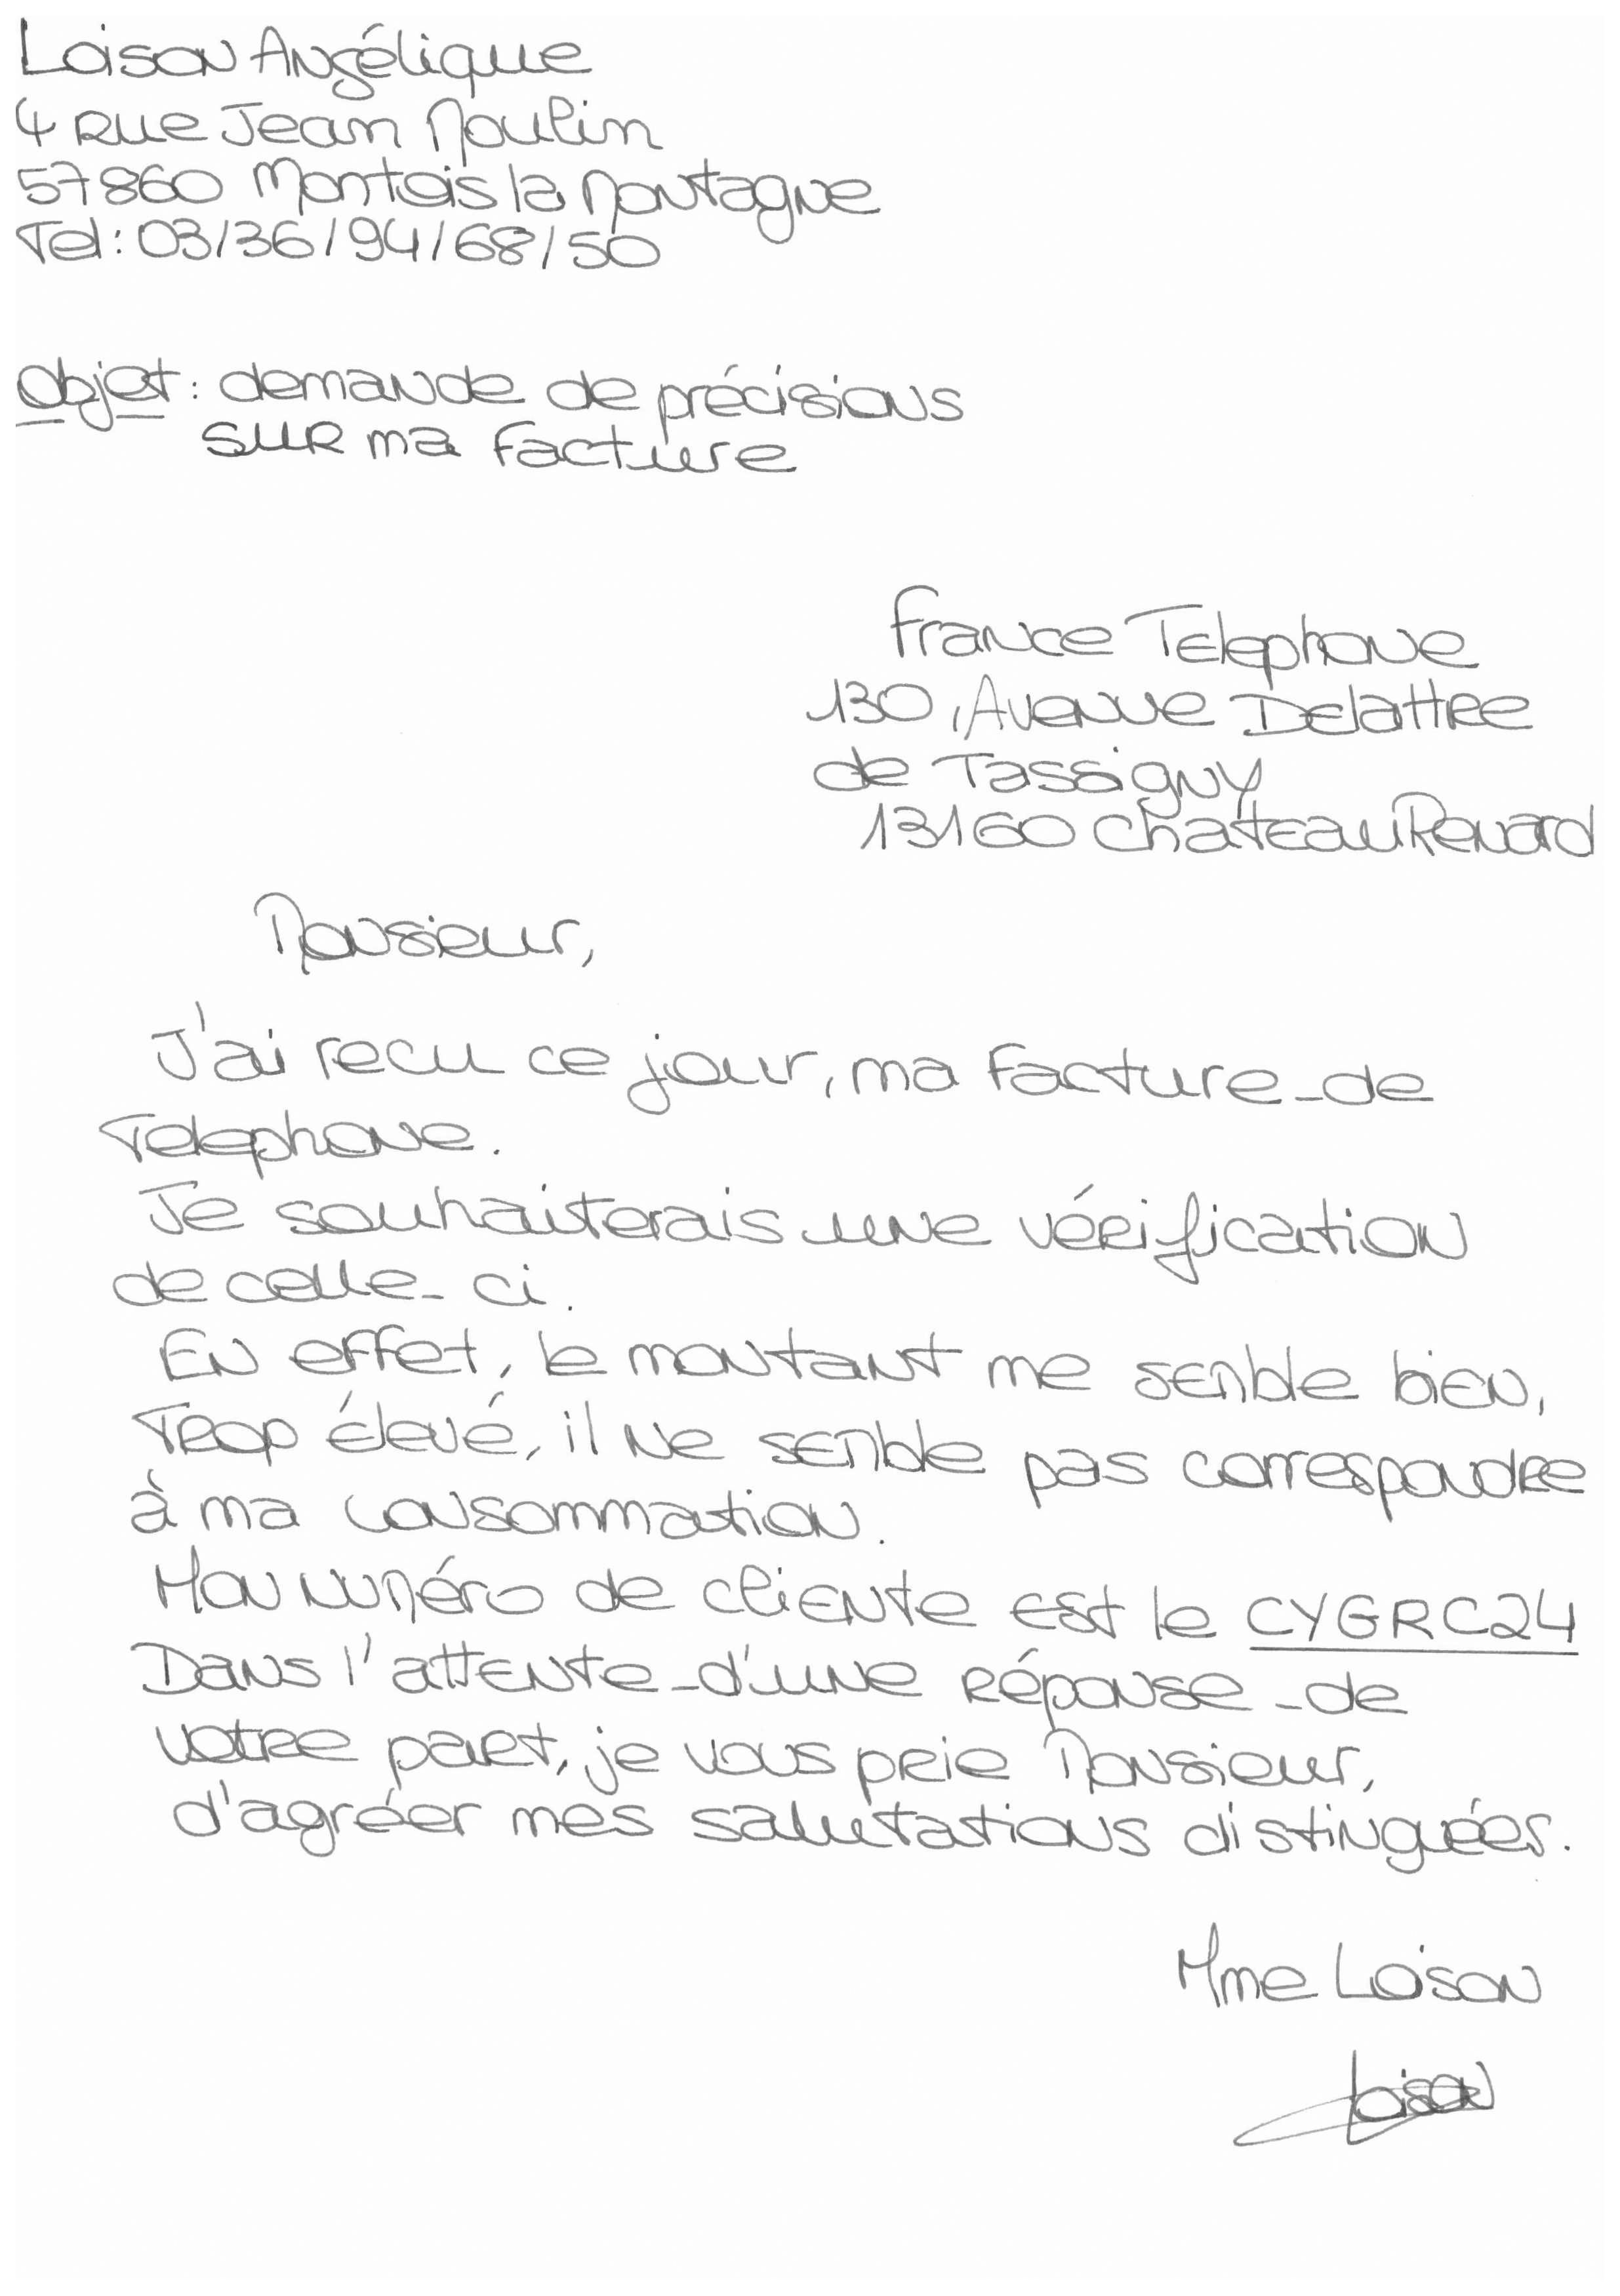 Loison Angélique
4 Rue Jean Moulin
57860 Montois la Montagne
Tel : 03/36/94/68/50
Objet : demande de précisions
sur ma facture
France Telephone
130, Avenue Delattre
de Tassigny
13160 ChateauRenard
Monsieur,
J'ai recu ce jour, ma facture de
Telephone.
Je souhaiterais une vérification
de celle-ci.
En effet, le montant me semble bien,
Trop élevé, il ne semble pas correspondre
à ma consommation.
Mon numéro de cliente est le CYGRC24
Dans l'attente d'une réponse de
votre part, je vous prie Monsieur,
d'agréer mes salutations distinguées.
Mme Loison
Loison